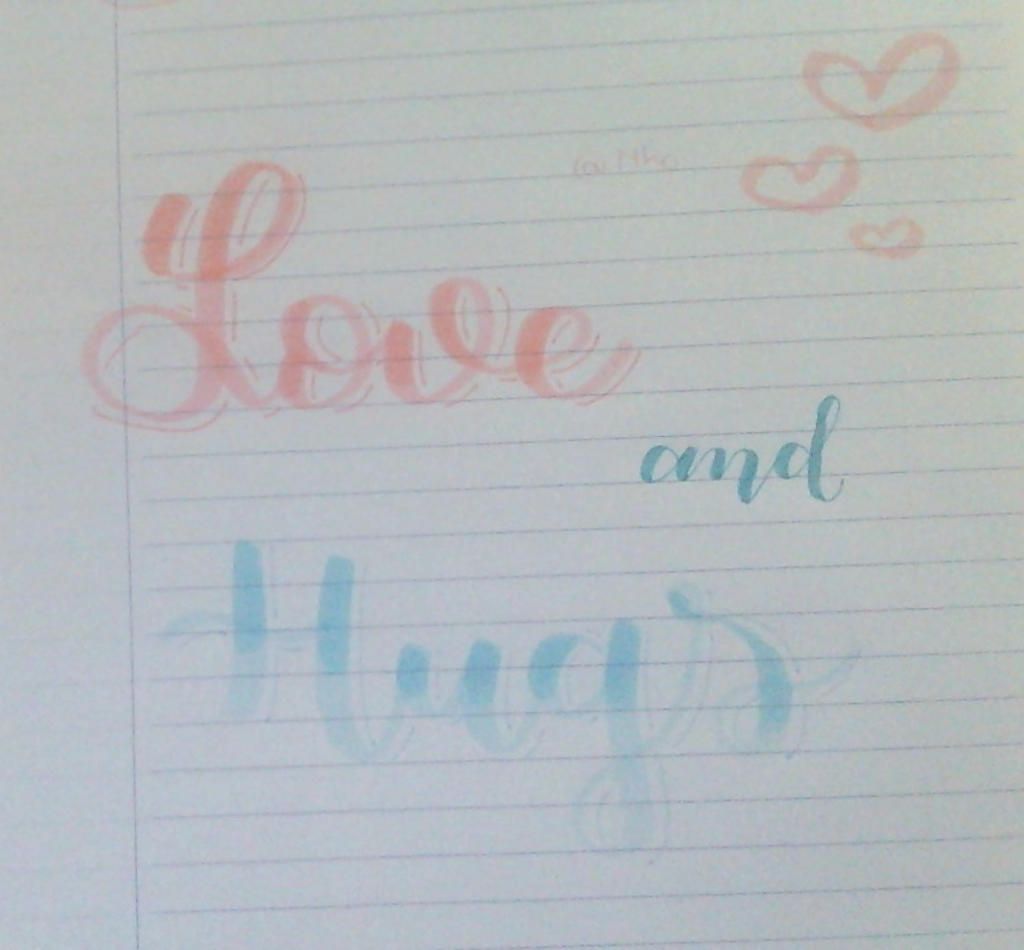 Love
and
Hugs